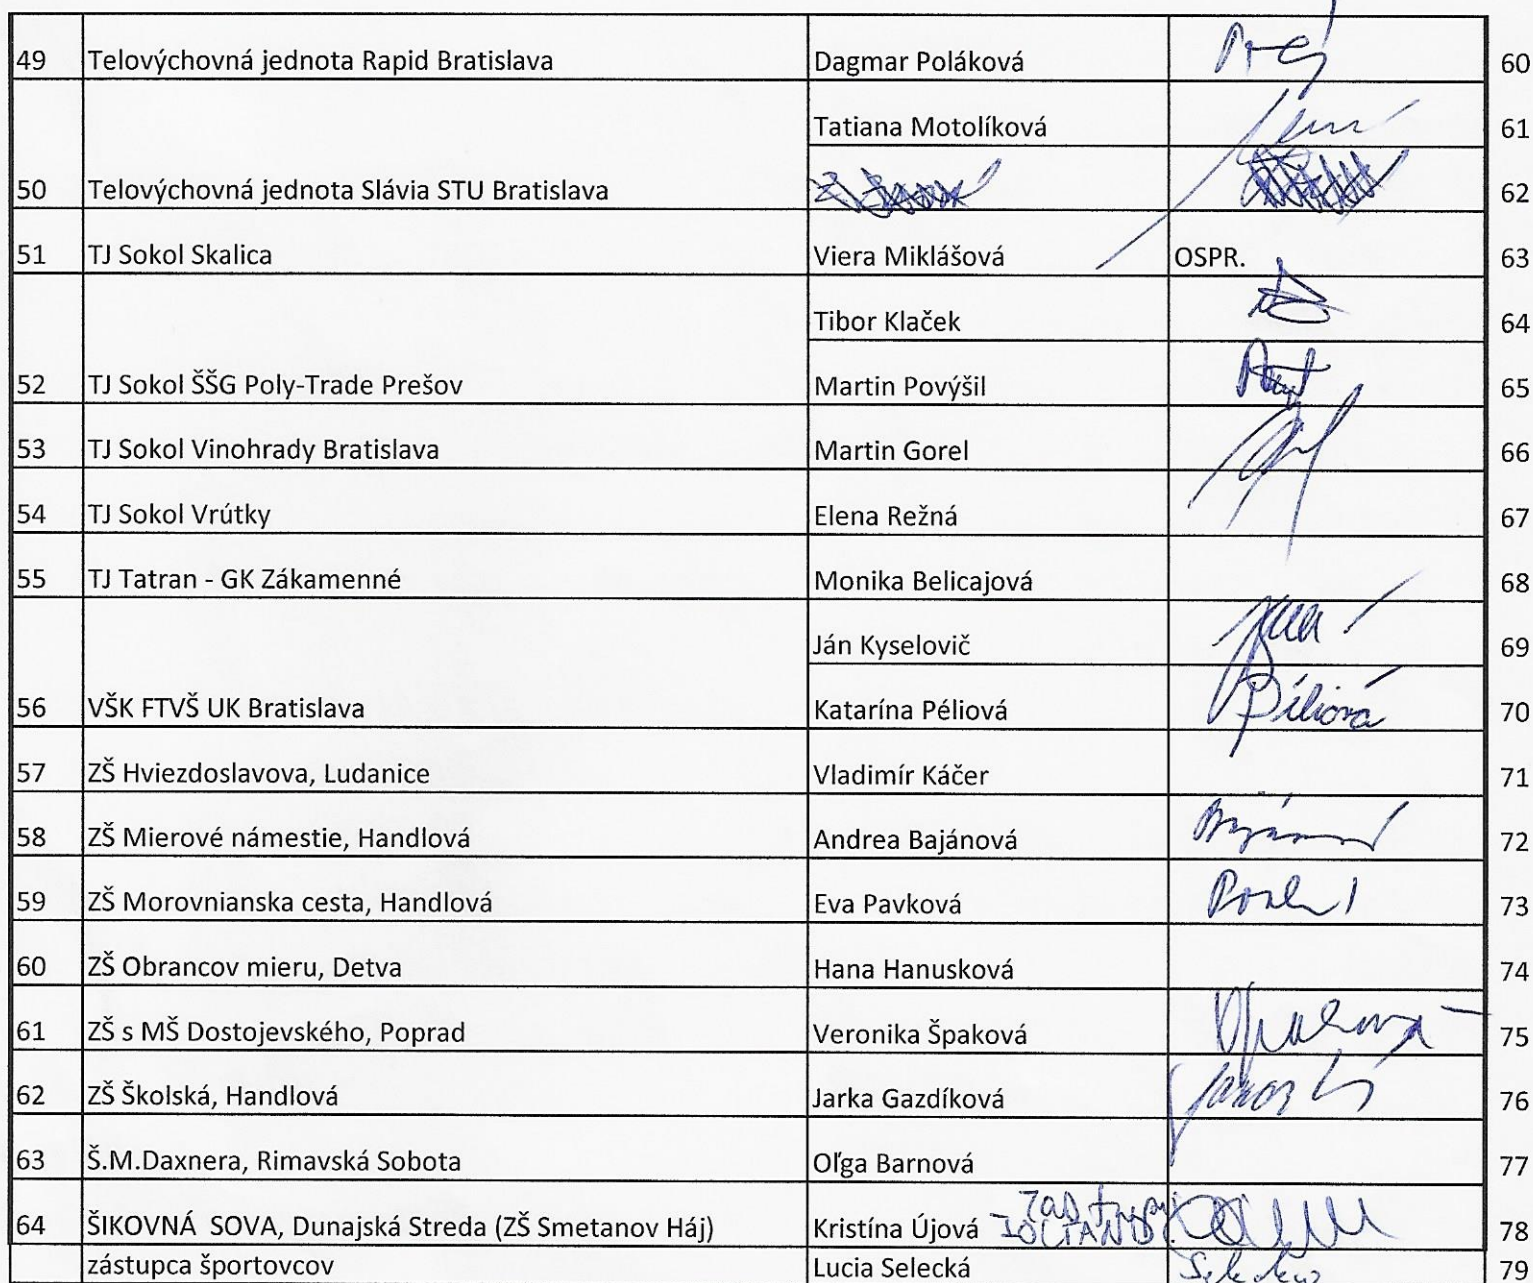 49 Telovýchovná jednota Rapid Bratislava Dagmar Poláková 60
Tatiana Motolíková 61
50 Telovýchovná jednota Slávia STU Bratislava 62
51 TJ Sokol Skalica Viera Miklášová OSPR. 63
Tibor Klaček 64
52 TJ Sokol ŠŠG Poly-Trade Prešov Martin Povýšil 65
53 TJ Sokol Vinohrady Bratislava Martin Gorel 66
54 TJ Sokol Vrútky Elena Režná 67
55 TJ Tatran - GK Zákamenné Monika Belicajová 68
Ján Kyselovič 69
56 VŠK FTVŠ UK Bratislava Katarína Péliová Péliová 70
57 ZŠ Hviezdoslavova, Ludanice Vladimír Káčer 71
58 ZŠ Mierové námestie, Handlová Andrea Bajánová 72
59 ZŠ Morovnianska cesta, Handlová Eva Pavková 73
60 ZŠ Obrancov mieru, Detva Hana Hanusková 74
61 ZŠ s MŠ Dostojevského, Poprad Veronika Špaková 75
62 ZŠ Školská, Handlová Jarka Gazdíková 76
63 Š.M.Daxnera, Rimavská Sobota Oľga Barnová 77
64 ŠIKOVNÁ SOVA, Dunajská Streda (ZŠ Smetanov Háj) Kristína Újová 78
zástupca športovcov Lucia Selecká 79